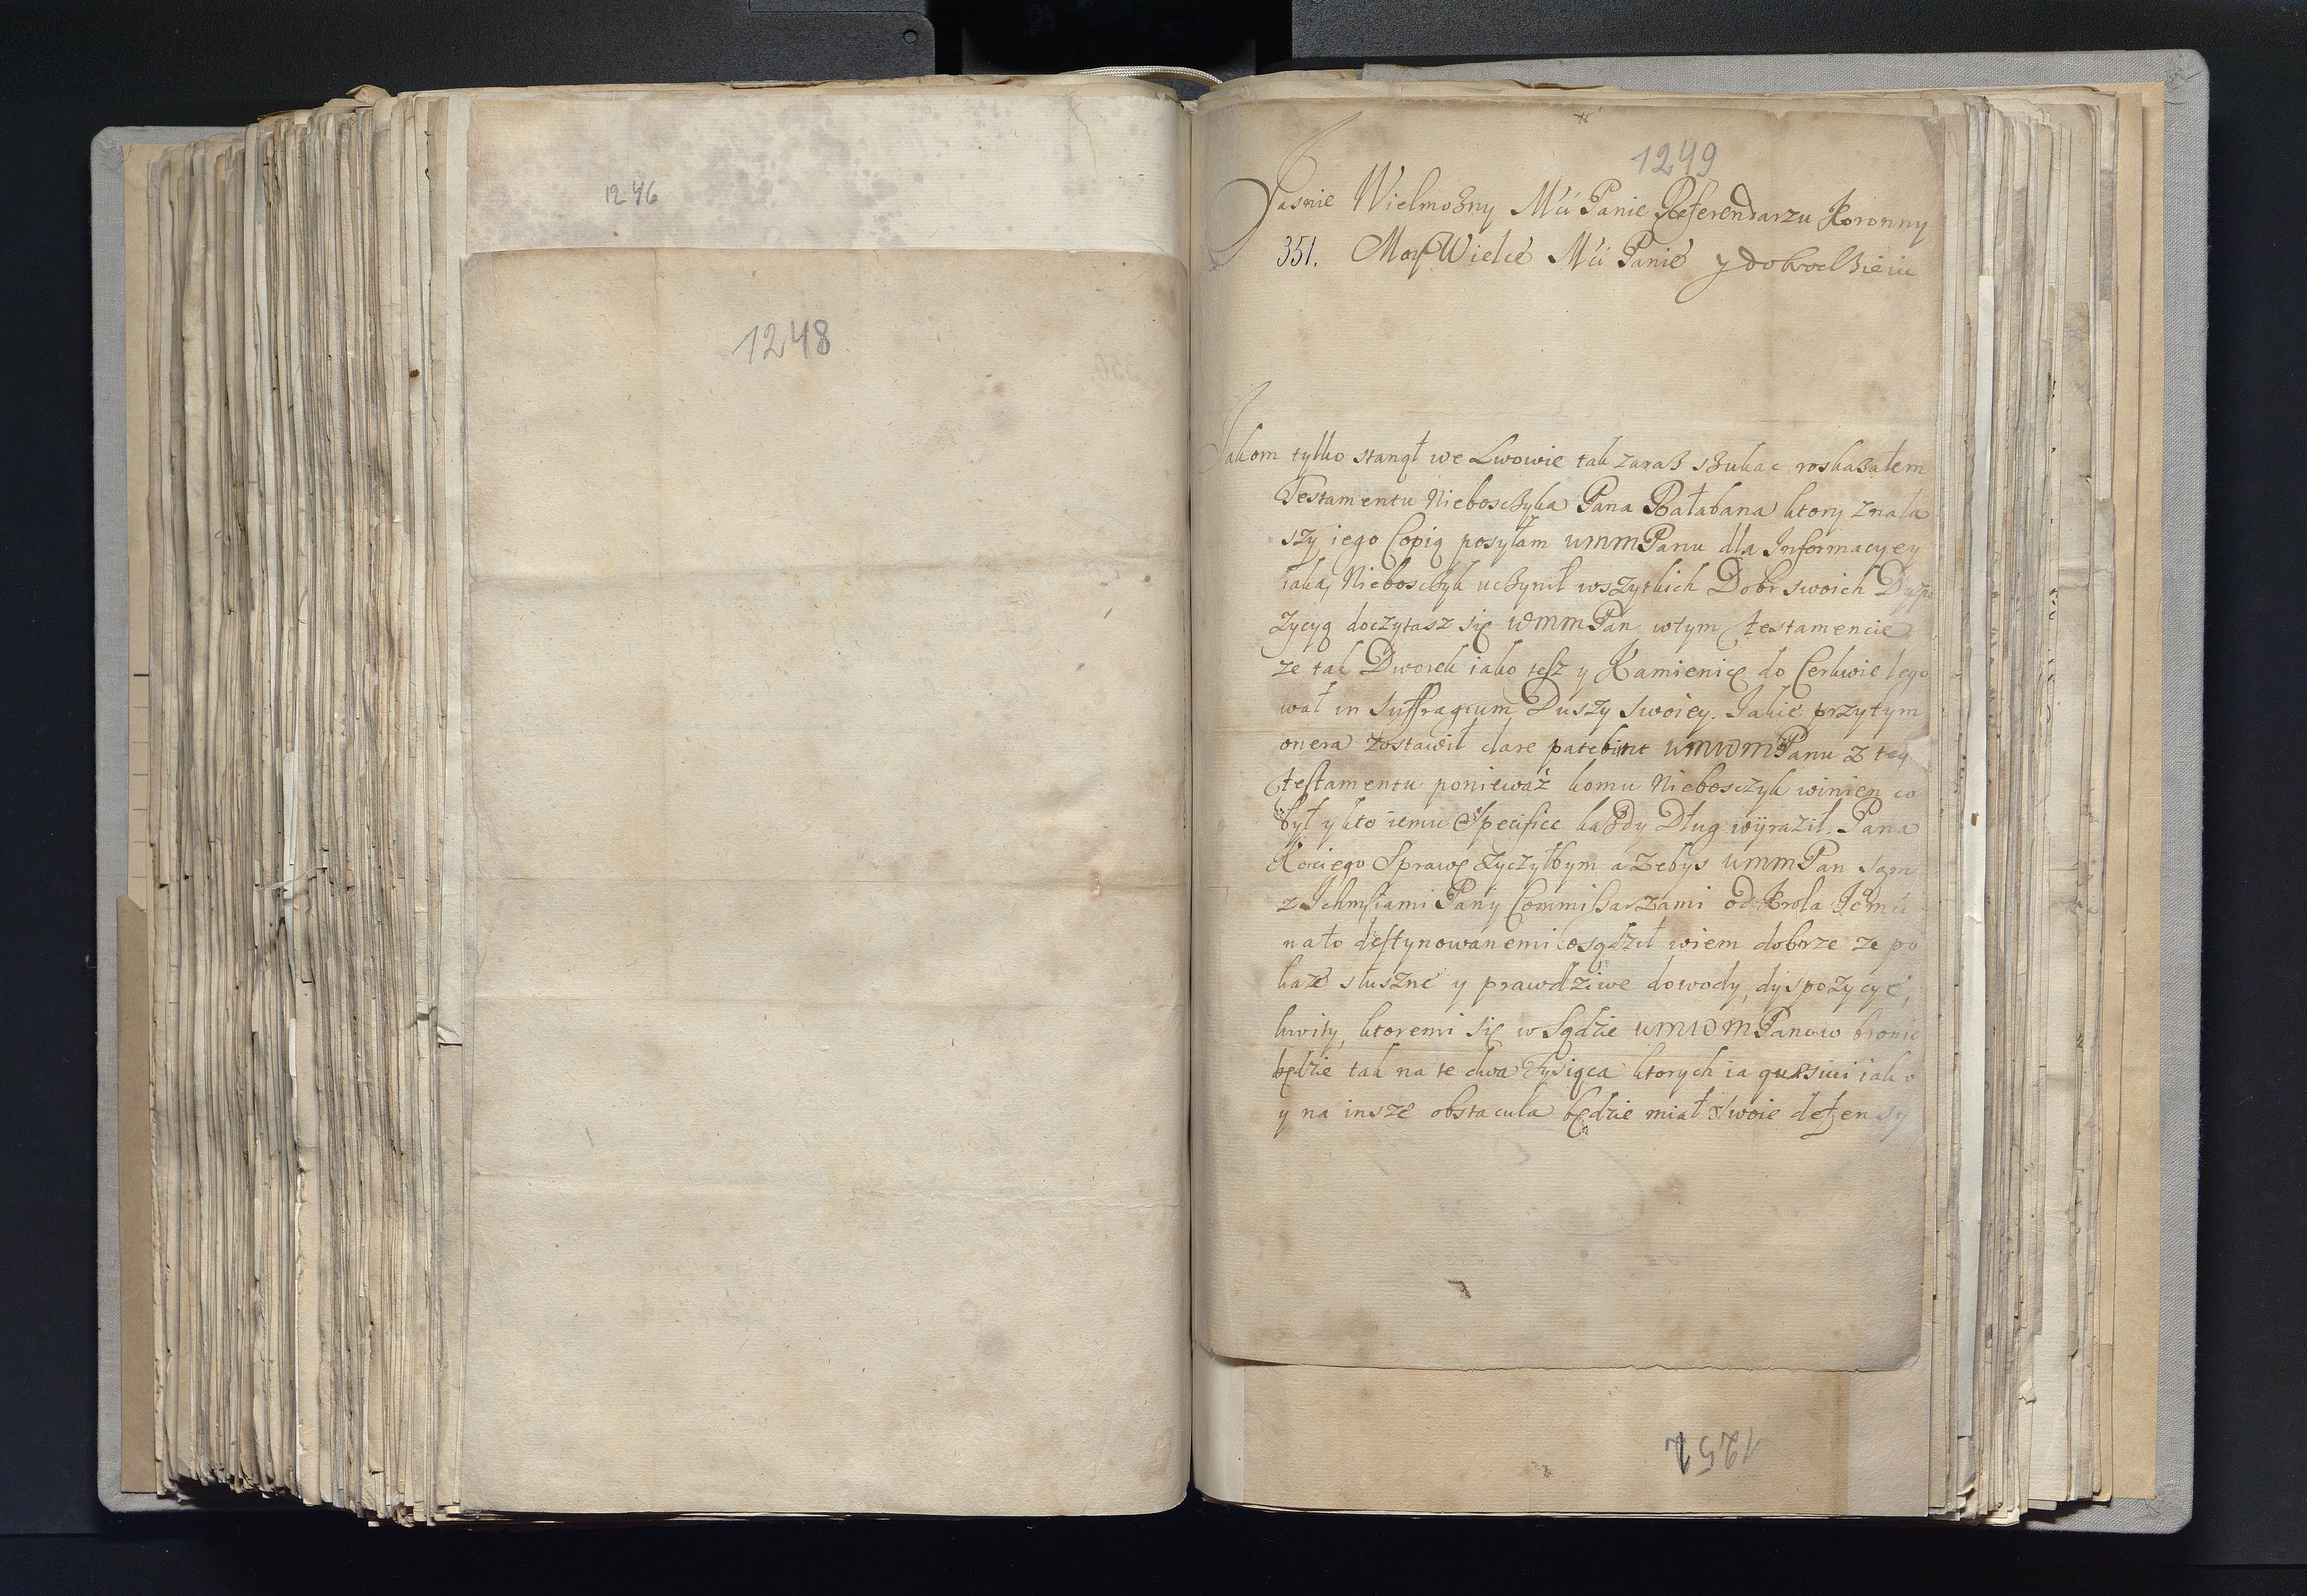 1246
1248
1249
Jasnie Wielmożny Mci Panie Referendarzu Koronny
351. Moy Wielce Mci Panie y dobrodzieiu
Jakom tylko stanął we Lwowie tak zaraz szukac roskazałem
Testamentu Nieboszczyka Pana Bałabana ktory znala
szy iego Copią posyłam WMMPanu dla Informacyey
iaką Nieboszczyk uczynił wszytkich Dobr swoich Dyspo
zycyą doczytasz się WMMPan w tym testamencie
ze tak Dworek iako tesz y Kamienicę do Cerkwie lego
wał in Suffragium Duszy swoiey. Jakie przytym
onera zostawił clare patebunt WMWMPanu z teg
testamentu ponieważ komu Nieboszczyk winien co
był y kto iemu Specifice każdy Dług wyraził. Pana
Sprawę życzyłbym azebys WMMPan sam
z Ichmsciami Pany Commissarzami od Krola Jemci
na to destynowanemi osądził wiem dobrze ze po
kaze słuszne y prawdziwe dowody, dyspozycye,
kwity, ktoremi się w Sądzie WMWMPanow bronic
będzie tak na te dwa Tysiąca ktorych ia iako
y na insze obstacula będzie miał swoie defensy
1252